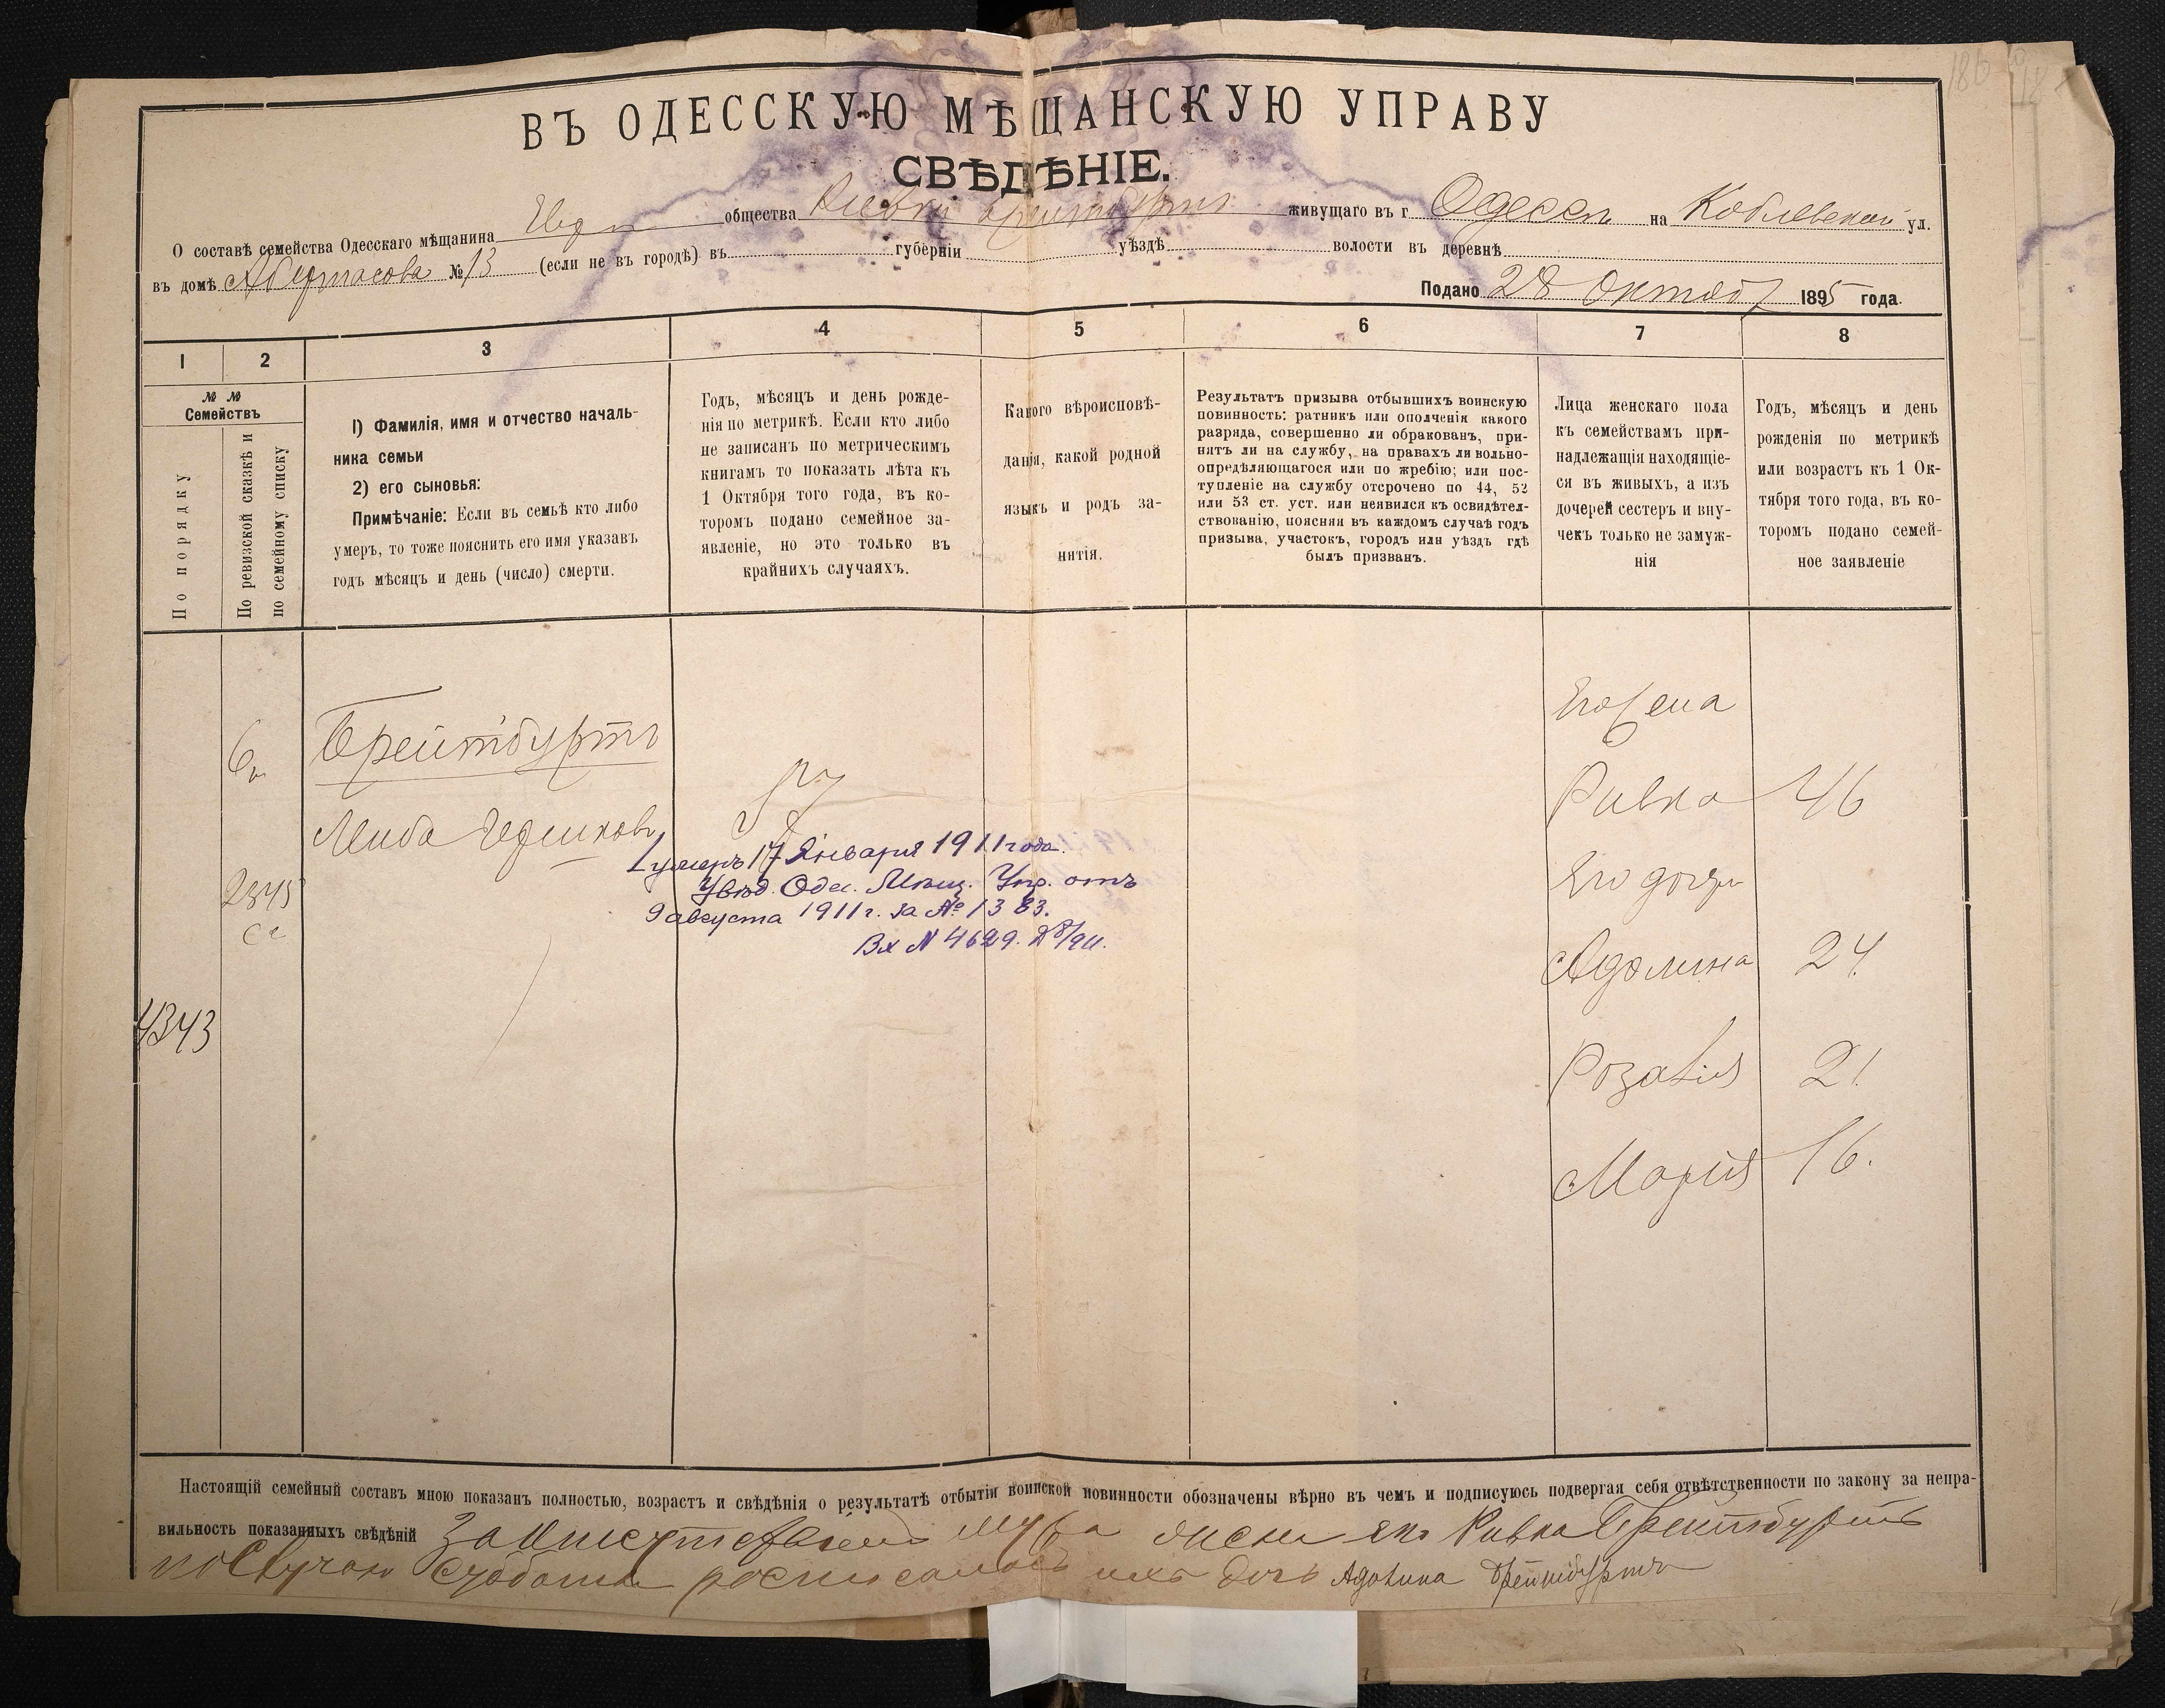 ВЪ ОДЕССКУЮ МѢЩАНСКУЮ УПРАВУ
СВѢДѢНІЕ.
О составѣ семейства Одесскаго мѣщанина Евр общества живущаго въ г Одессѣ на Коблевской ул.
въ домѣ № 13 (если не въ городѣ) въ губерніи уѣздѣ волости въ деревнѣ
Подано 28 Октяб 1895 года.
1 2 3 4 5 6 7 8
№ №
Семействъ
По порядку
По ревизской сказкѣ и
по семейному списку
1) Фамилія, имя и отчество началь-
ника семьи
2) его сыновья:
Примѣчаніе: Если въ семьѣ кто либо
умеръ, то тоже пояснить его имя указавъ
годъ мѣсяцъ и день (число) смерти.
Годъ, мѣсяцъ и день рожде-
нія по метрикѣ. Если кто либо
не записанъ по метрическимъ
книгамъ то показать лѣта къ
1 Октября того года, въ ко-
торомъ подано семейное за-
явленіе, но это только въ
крайнихъ случаяхъ.
Какого вѣроисповѣ-
данія, какой родной
языкъ и родъ за-
нятія.
Результатъ призыва отбывшихъ воинскую
повинность: ратникъ или ополченія какого
разряда, совершенно ли обракованъ, при-
нятъ ли на службу, на правахъ ли вольно-
опредѣляющагося или по жребію; или пос-
тупленіе на службу отсрочено по 44, 52
или 53 ст. уст. или неявился къ освидѣтел-
ствованію, поясняя въ каждомъ случаѣ годъ
призыва, участокъ, городъ или уѣздъ гдѣ
былъ призванъ.
Лица женскаго пола
къ семействамъ при-
надлежащія находящіе-
ся въ живыхъ, а изъ
дочерей сестеръ и вну-
чекъ только не замуж-
нія
Годъ, мѣсяцъ и день
рожденія по метрикѣ
или возрастъ къ 1 Ок-
тября того года, въ ко-
торомъ подано семей-
ное заявленіе
Его жена
Брейтбуртъ
57
Ривка 46
Лейба
умеръ 17 Января 1911 года.
Увѣд. Одес. Мѣщ. Упр. отъ
9 августа 1911 г. за № 1383.
Вх N 4629.
Его дочери
2345
Адолина 24
4343
Розалія 21
Марія 16.
Настоящій семейный составъ мною показанъ полностью, возрастъ и свѣдѣнія о результатѣ отбытіи воинской повинности обозначены вѣрно въ чемъ и подписуюсь подвергая себя отвѣтственности по закону за непра-
вильность показанныхъ свѣдѣній За мужа жена его Ривка Брейтбуртъ
по случаю субботы росписалась ихъ дочь Адолина Брейтбуртъ